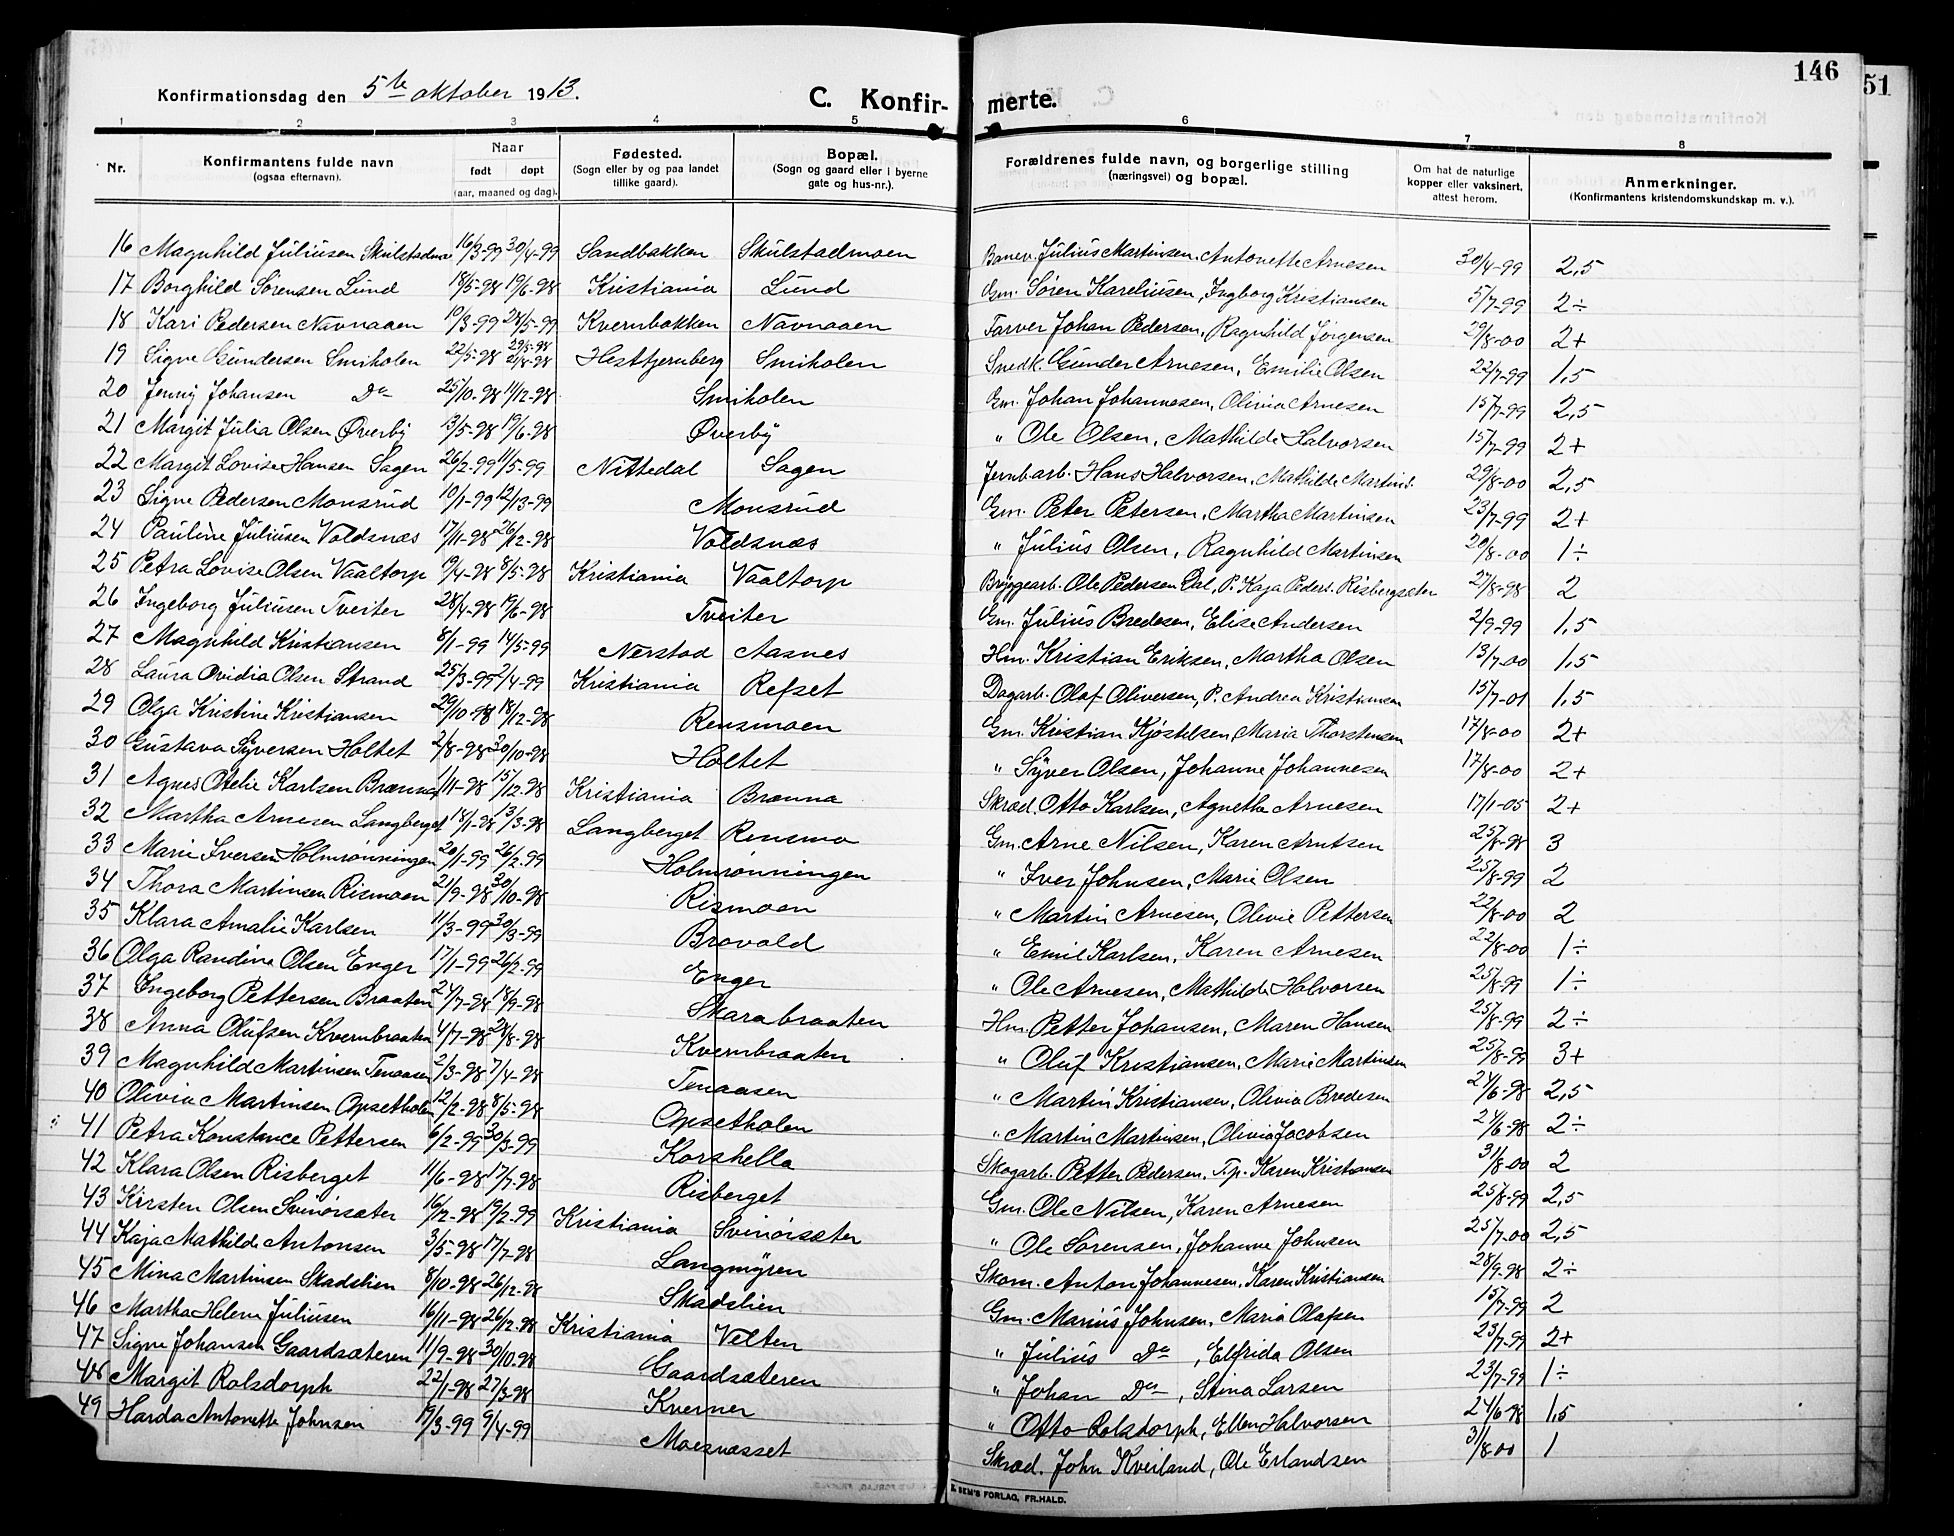 146
51
Konfirmationsdag den 5te oktober 1913.
C. Konfirmerte.
1 2 3 4 5 6 7 8
Nr.
Konfirmantens fulde navn (ogsaa efternavn).
Naar født døpt (aar, maaned og dag).
Fødested. (Sogn eller by og paa landet tillike gaard).
Bopæl. (Sogn og gaard eller i byerne gate og hus-nr.).
Forældrenes fulde navn, og borgerlige stilling (næringsvei) og bopæl.
Om hat de naturlige kopper eller vaksinert, attest herom.
Anmerkninger. (Konfirmantens kristendomskundskap m. v.).
16 Magnhild Juliusen Skulstadmoe 16/3-99 30/4-99 Sandbakken Skulstadmoen Banev. Julius Martinsen, Antonette Arnesen 30/4-99 2,5
17 Borghild Sørensen Lund 18/5-98 19/6-98 Kristiania Lund Gm. Søren Kareliusen, Ingborg Kristiansen 5/7-99 2÷
18 Kari Pedersen Navnaaen 10/3-99 28/5-99 Kvernbakken Navnaaen Farver Johan Pedersen, Ragnhild Jørgensen 29/8-00 2+
19 Signe Gundersen Smiholen 22/5-98 29/5-98 21/8-98 Hesttjernberg Smiholen Snedk. Gunder Arnesen, Emilie Olsen 22/7-99 1,5
20 Jenny Johansen Do 25/10-98 11/12-98 Smiholen Gm. Johan Johannesen, Olivia Arnesen 15/7-99 2,5
21 Margit Julia Olsen Øverby 13/5-98 19/6-98 Øverby " Ole Olsen, Mathilde Halvorsen 15/7-99 2+
22 Margit Lovise Hansen Sagen 26/2-99 11/5-99 Nittedal Sagen Jernb.arb. Hans Halvorsen, Mathilde Martins. 29/8-00 2,5
23 Signe Pedersen Monsrud 10/1-99 12/13-99 Monsrud Gm. Peter Petersen, Martha Martinsen 23/7-99 2+
24 Pauline Juliusen Voldsnæs 17/11-98 26/12-98 Voldsnæs " Julius Olsen, Ragnhild Martinsen 20/8-00 1÷
25 Petra Lovise Olsen Vaaltorp 9/4-98 8/5-98 Kristiania Vaaltorp Bryggearb. Ole Pedersen Dal, P. Kaja Peders. Risbergsæter 27/8-98 2
26 Ingeborg Juliusen Tveiter 28/4-98 19/6-98 Tveiter Gm. Julius Bredesen, Elise Andersen 2/9-99 1,5
27 Magnhild Kristiansen 8/1-99 14/5-99 Nerstad Aasnes Hm. Kristian Eriksen, Martha Olsen 13/7-00 1,5
28 Laura Ovidia Olsen Strand 25/3-99 2/4-99 Kristiania Refset Dagarb. Olaf Oliversen, P. Andrea Kristiansen 15/7-01 1,5
29 Olga Kristine Kristiansen 29/10-98 18/12-98 Rensmoen Gm. Kristian Kjøstelsen, Maria Thorstensen 17/8-00 2+
30 Gustava Syversen Holtet 2/8-98 30/10-98 Holtet " Syver Olsen, Johanne Johannesen 17/8-00 2+
31 Agnes Otelie Karlsen Brænna 1/11-98 15/12-98 Kristiania Brænna Skræd. Otto Karlsen, Agnethe Arnesen 17/1-05 2+
32 Martha Arnesen Langberget 18/1-98 13/3-98 Langberget Rensmo Gm. Arne Nilsen, Karen Arntsen 25/8-98 3
33 Marie Iversen Holmrønningen 20/1-99 26/2-99 Holmrønningen " Iver Johnsen, Marie Olsen 25/8-99 2
34 Thora Martinsen Rismoen 21/9-98 30/10-98 Rismoen " Martin Arnesen, Olivie Pettersen 22/8-00 2
35 Klara Amalie Karlsen 11/3-99 30/3-99 Brovold " Emil Karlsen, Karen Arnesen 22/8-00 1÷
36 Olga Randine Olsen Enger 17/1-99 26/2-99 Enger " Ole Arnesen, Mathilde Halvorsen 25/8-99 1÷
37 Ingeborg Pettersen Braaten 24/7-98 18/9-98 Skarabraaten Hm. Petter Johansen, Maren Hansen 25/8-99 2÷
38 Anna Olufsen Kvernbraaten 4/7-98 28/8-98 Kvernbraaten " Oluf Kristiansen, Marie Martinsen 25/8-98 3+
39 Magnhild Martinsen Tenaasen 2/3-98 7/4-98 Tenaasen " Martin Kristiansen, Olivia Bredesen 24/6-98 2,5
40 Olivia Martinsen Opsetholen 12/2-98 8/5-98 Opsetholen " Martin Martinsen, Olivia Jacobsen 24/6-98 2÷
41 Petra Konstance Pettersen 6/2-99 30/3-99 Korshella Skogarb. Petter Pedersen, T.p. Karen Kristiansen 31/8-00 2
42 Klara Olsen Risberget 11/6-98 17/7-98 Risberget Gm. Ole Nilsen, Karen Arnesen 25/8-99 2,5
43 Kirsten Olsen Svinoisæter 16/12-98 19/2-99 Kristiania Svinoisæter " Ole Sørensen, Johanne Johnsen 25/7-00 2,5
44 Kaja Mathilde Antonsen 3/5-98 17/7-98 Langmyren Skom. Anton Johannesen, Karen Kristiansen 28/9-98 2÷
45 Mina Martinsen Skadslien 8/10-98 26/12-98 Skadslien Gm. Marius Johnsen, Maria Olafsen 15/7-99 2
46 Martha Helene Juliusen 16/11-98 26/12-98 Kristiania Velten " Julius Do, Elfrida Olsen 23/7-99 2+
47 Signe Johansen Gaardsæteren 11/9-98 30/10-98 Gaardsæteren " Johan Do, Stina Larsen 23/7-99 1÷
48 Margit Rolsdorph 22/1-98 27/3-98 Kverner " Otto Rolsdorph, Ellen Halvorsen 24/6-98 1,5
49 Harda Antonette Johnsen 19/3-99 9/4-99 Moesvasset Skræd. John Kveiland, Ole Erlandsen 31/8-00 1
E. SEM'S FORLAG, FR.HALD.